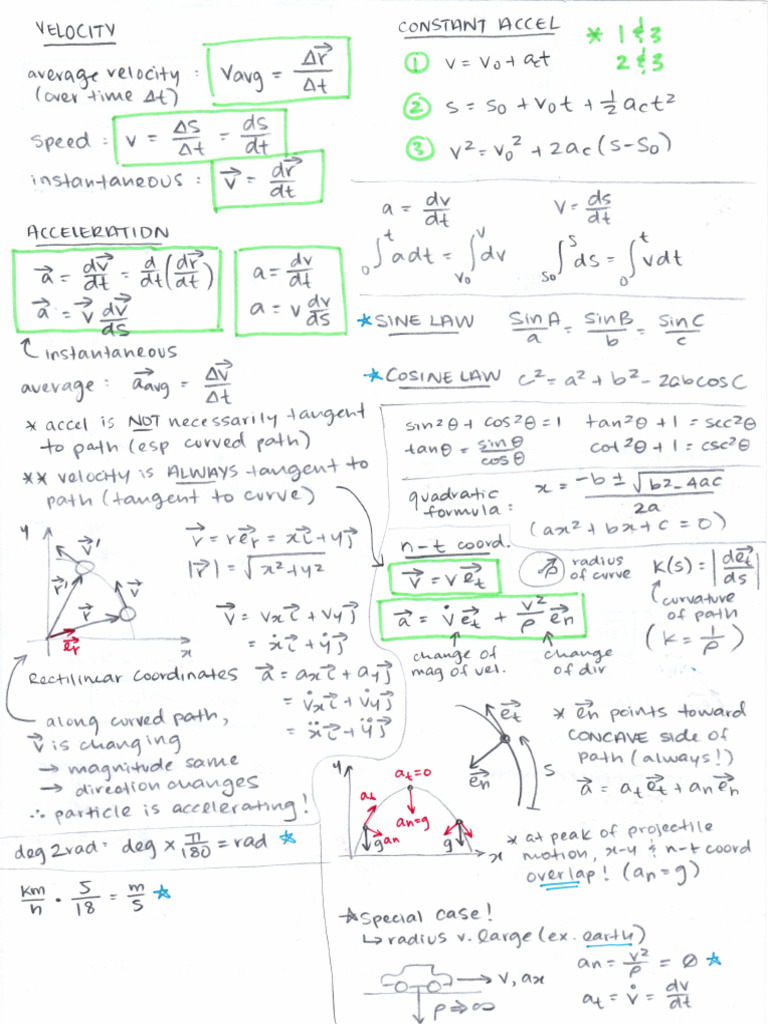 VELOCITY
average velocity : v⃗avg = Δr⃗/Δt
(over time Δt)
speed : v = Δs/Δt = ds/dt
instantaneous : v⃗ = dr⃗/dt
ACCELERATION
a⃗ = dv⃗/dt = d/dt(dr⃗/dt)
a⃗ = v⃗ dv⃗/ds
a = dv/dt
a = v dv/ds
instantaneous
average : a⃗avg = Δv⃗/Δt
* accel is NOT necessarily tangent
to path (esp curved path)
** velocity is ALWAYS tangent to
path (tangent to curve)
y
v⃗'
r⃗'
v⃗
r⃗
e⃗r
x
r⃗ = re⃗r = xi⃗ + yj⃗
|r⃗| = √x²+y²
v⃗ = vxi⃗ + vyj⃗
= ẋi⃗ + ẏj⃗
Rectilinear Coordinates
a⃗ = axi⃗ + ayj⃗
= v̇xi⃗ + v̇yj⃗
= ẍi⃗ + ÿj⃗
along curved path,
v⃗ is changing
→ magnitude same
→ direction changes
∴ particle is accelerating!
deg2rad: deg × π/180 = rad ☆
km/h · 5/18 = m/s ☆
CONSTANT ACCEL
* 1 & 3
2 & 3
① v = v0 + act
② s = s0 + v0t + ½ act²
③ v² = v0² + 2ac(s-s0)
a = dv/dt
v = ds/dt
0∫t adt = v0∫v dv
s0∫s ds = 0∫t vdt
☆ SINE LAW sinA/a = sinB/b = sinC/c
☆ COSINE LAW c² = a² + b² - 2abcosC
sin²θ + cos²θ = 1
tan²θ + 1 = sec²θ
tanθ = sinθ/cosθ
cot²θ + 1 = csc²θ
quadratic
formula :
x = -b ± √b2-4ac / 2a
(ax² + bx + c = 0)
n-t coord.
v⃗ = ve⃗t
ρ
radius
of curve
K(s) = |de⃗t/ds|
curvature
of path
(K = 1/ρ)
a⃗ = v̇e⃗t + v²/ρ e⃗n
change of
mag of vel.
change
of dir
e⃗t
e⃗n
s
* e⃗n points toward
CONCAVE side of
path (always!)
a⃗ = ate⃗t + ane⃗n
y
at
at=0
an=g
an
g
g
x
* at peak of projectile
motion, x-y & n-t coord
overlap! (an=g)
☆ special case!
↳ radius v. large (ex. earth)
v, ax
ρ ⇒ ∞
an = v²/ρ = 0 ☆
at = v̇ = dv/dt